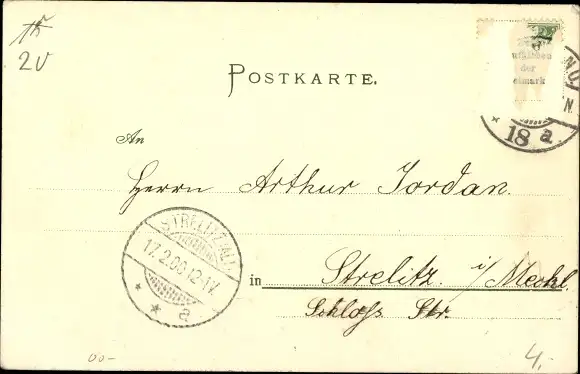 20
POSTKARTE.
der
18 a.
An
Herrn Arthur Jordan.
STRELITZ (ALT)
17.2.00.12-1V.
* * a
in Strelitz. i/Meckl.
Schloss Str.
00-
4,-